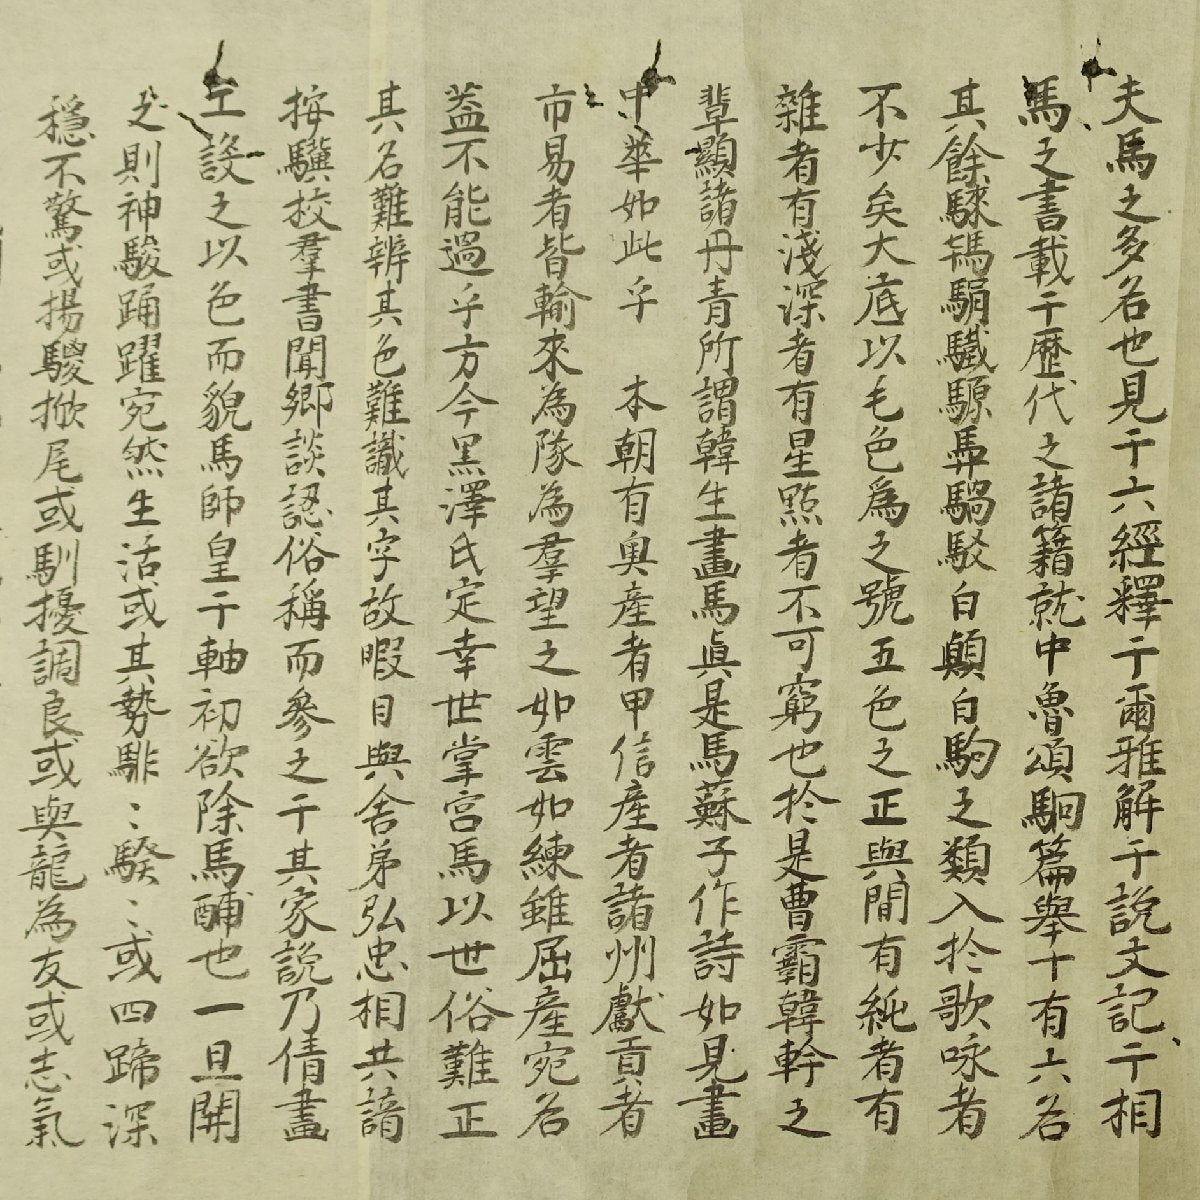 夫馬之多名也見于六經釋于爾雅解于說文記于相
馬之書載于歷代之諸籍就中魯頌駉篇舉十有六名
其餘騋驈騧驖騵馵騧駁白顛白駒之類入於歌咏者
不少矣大底以毛色為之號五色之正與間有純者有
雜者有淺深者有星點者不可窮也於是曹霸韓幹之
輩顯諸丹青所謂韓生畫馬真是馬蘇子作詩如見畫
中華如此乎 本朝有奥產者甲信產者諸州獻貢者
市易者皆輸來為隊為羣望之如雲如練雖屈產宛名
蓋不能過乎方今黑澤氏定幸世掌宮馬以世俗難正
其名難辨其色難識其字故暇日與舍弟弘忠相共諳
按驥挍羣書聞鄉談認俗稱而參之于其家說乃倩畫
工設之以色而貌馬師皇于軸初欲除馬酺也一旦開
之則神駿踊躍宛然生活或其勢騑〻騤〻或四蹄深
穩不驚或揚騣掀尾或馴擾調良或與龍為友或志氣